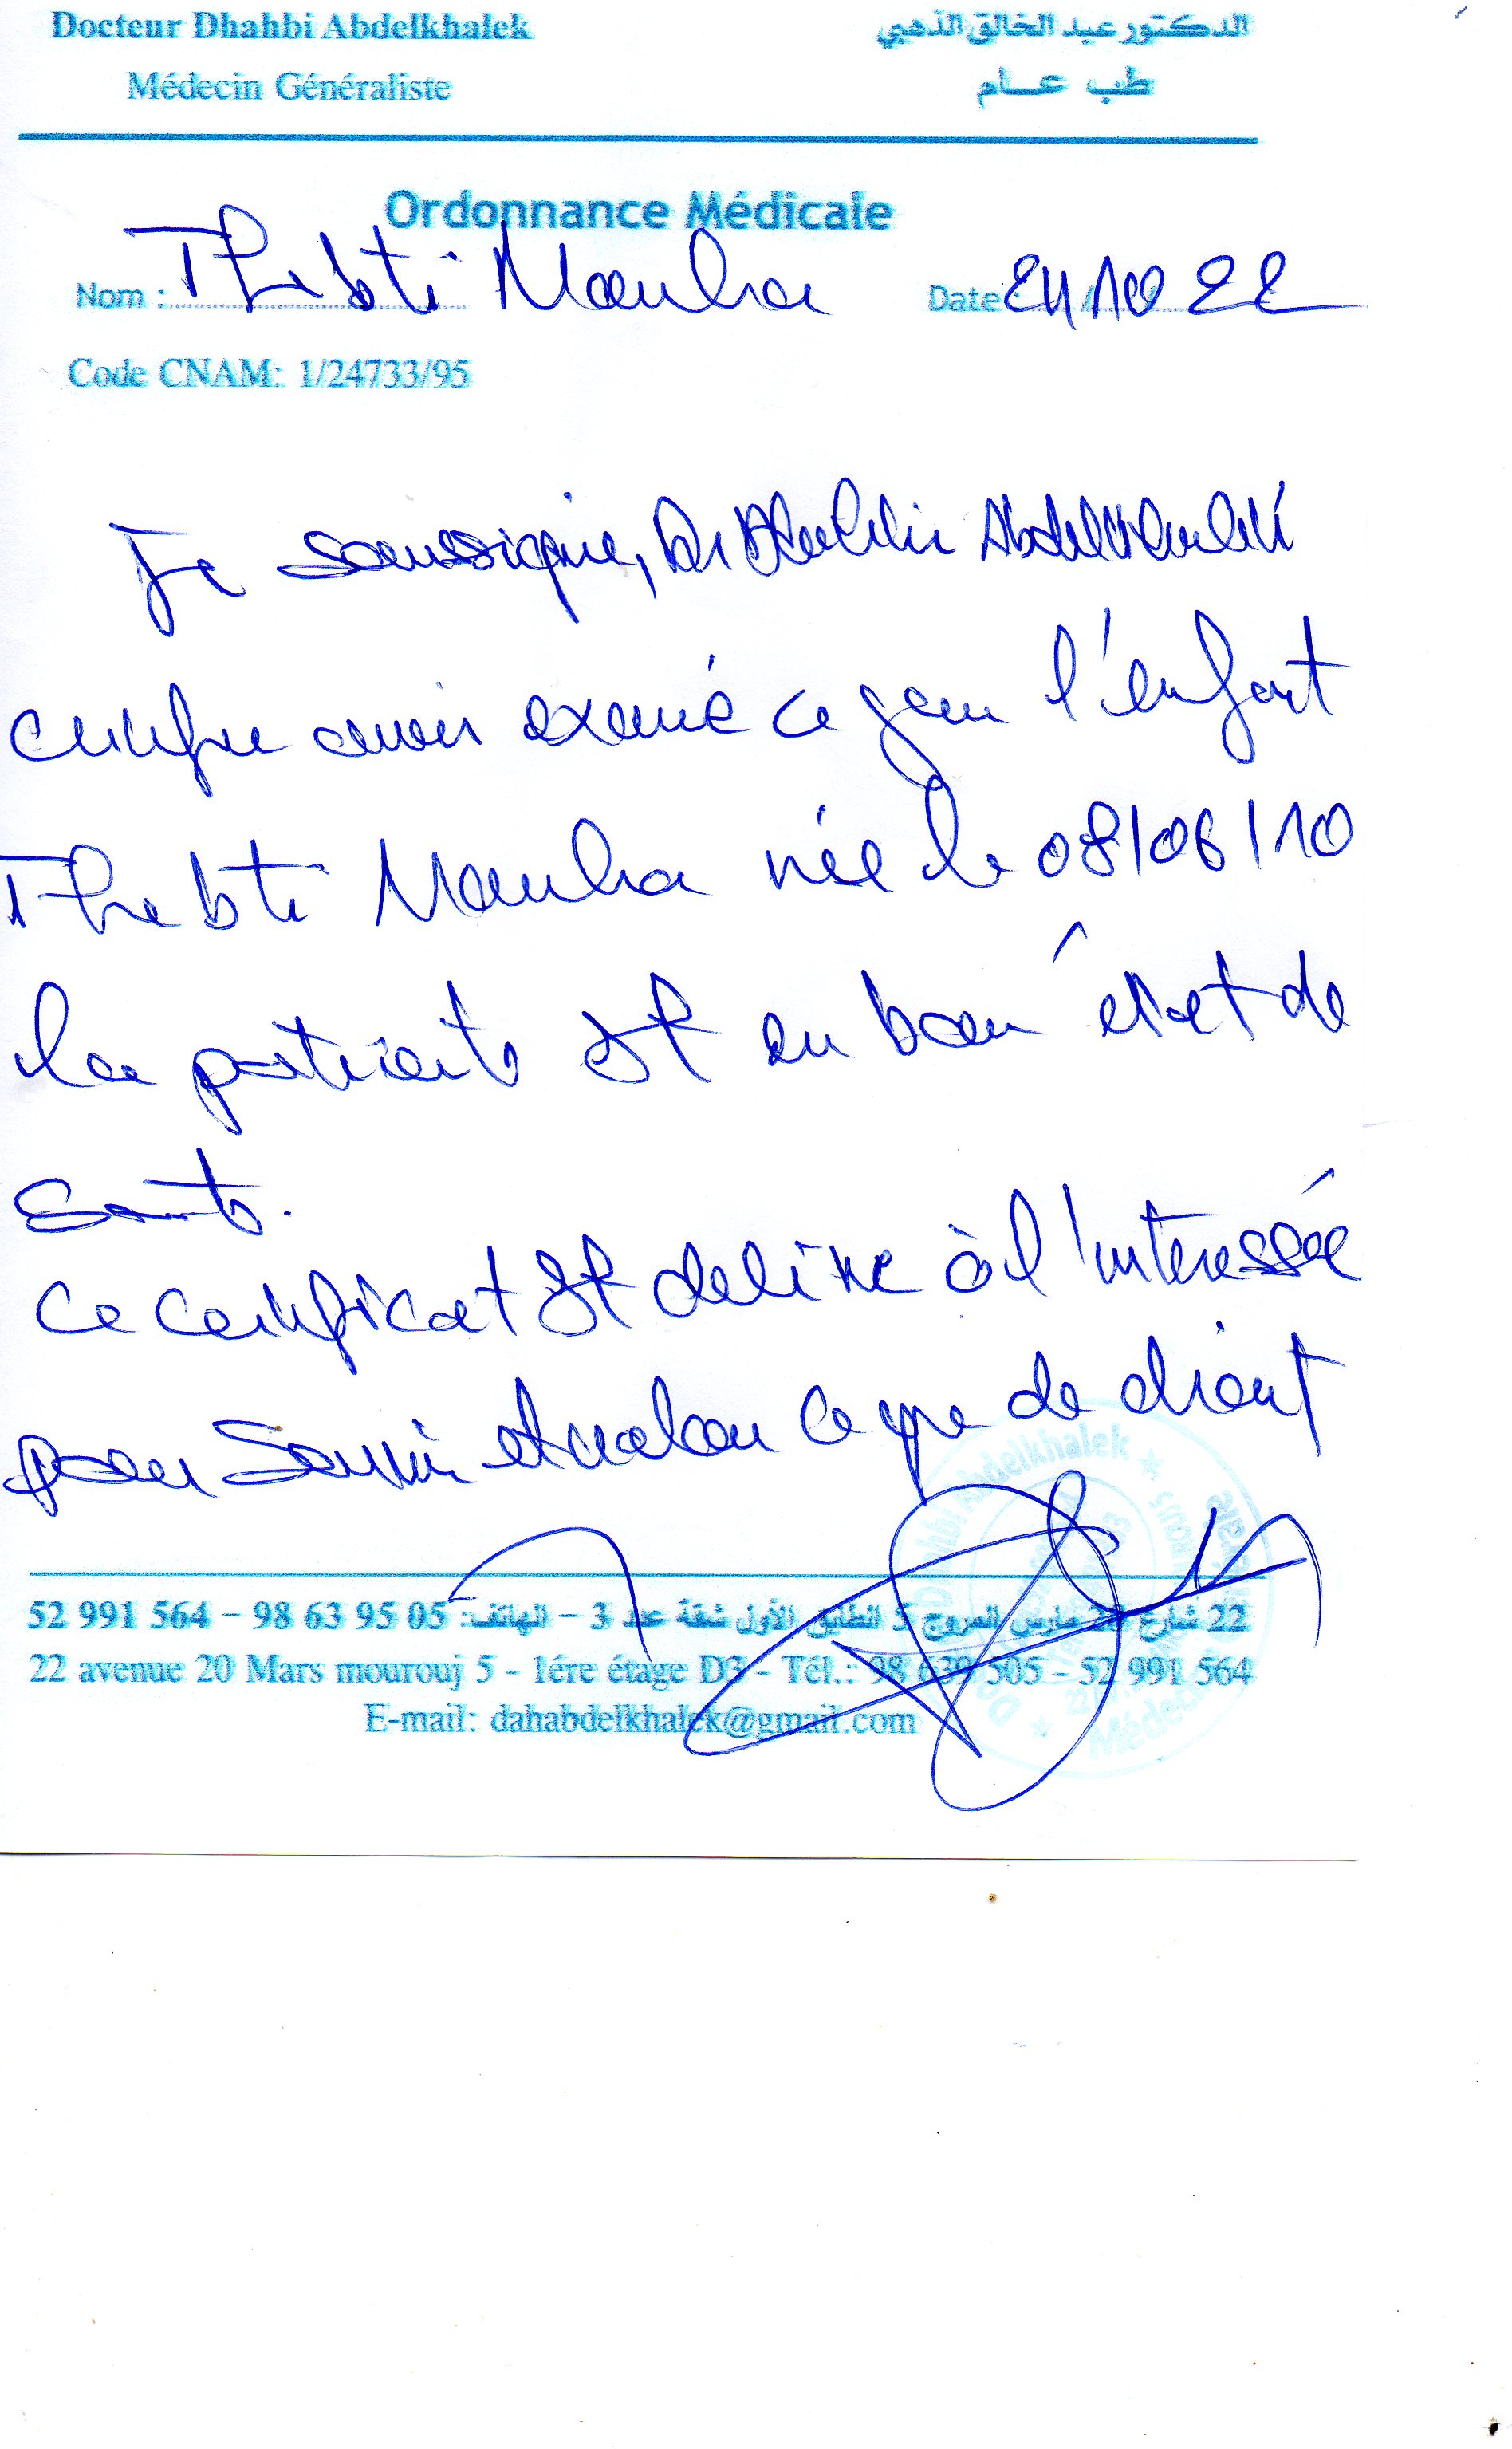 Docteur Dhahbi Abdelkhalek
الدكتور عبد الخالق الذهبي
Médecin Généraliste
طب عام
Ordonnance Médicale
Nom : Thabti Manha Date : 24 10 22
Code CNAM: 1/24733/95
Je soussigné, Dr Dhahbi Abdelkhalek
certifie avoir examiné ce jour l'enfant
Thabti Manha née le 08/06/10
la patiente est en bon état de
santé.
Ce certificat est delivré à l'intéressée
pour servir et valoir ce que de droit
22 شارع 20 مارس المروج 5 الطابق الأول شقة عدد 3 – الهاتف: 05 95 63 98 – 564 991 52
22 avenue 20 Mars mourouj 5 - 1ére étage D3 - Tél.: 98 639 505 - 52 991 564
E-mail: dahabdelkhalek@gmail.com